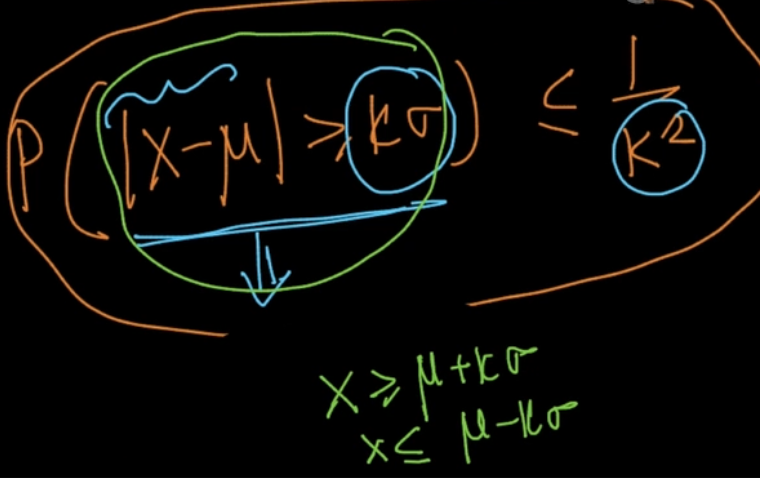 P(|X-μ| ≥ kσ) ≤ 1/K²
X ≥ μ+kσ
x ≤ μ-kσ